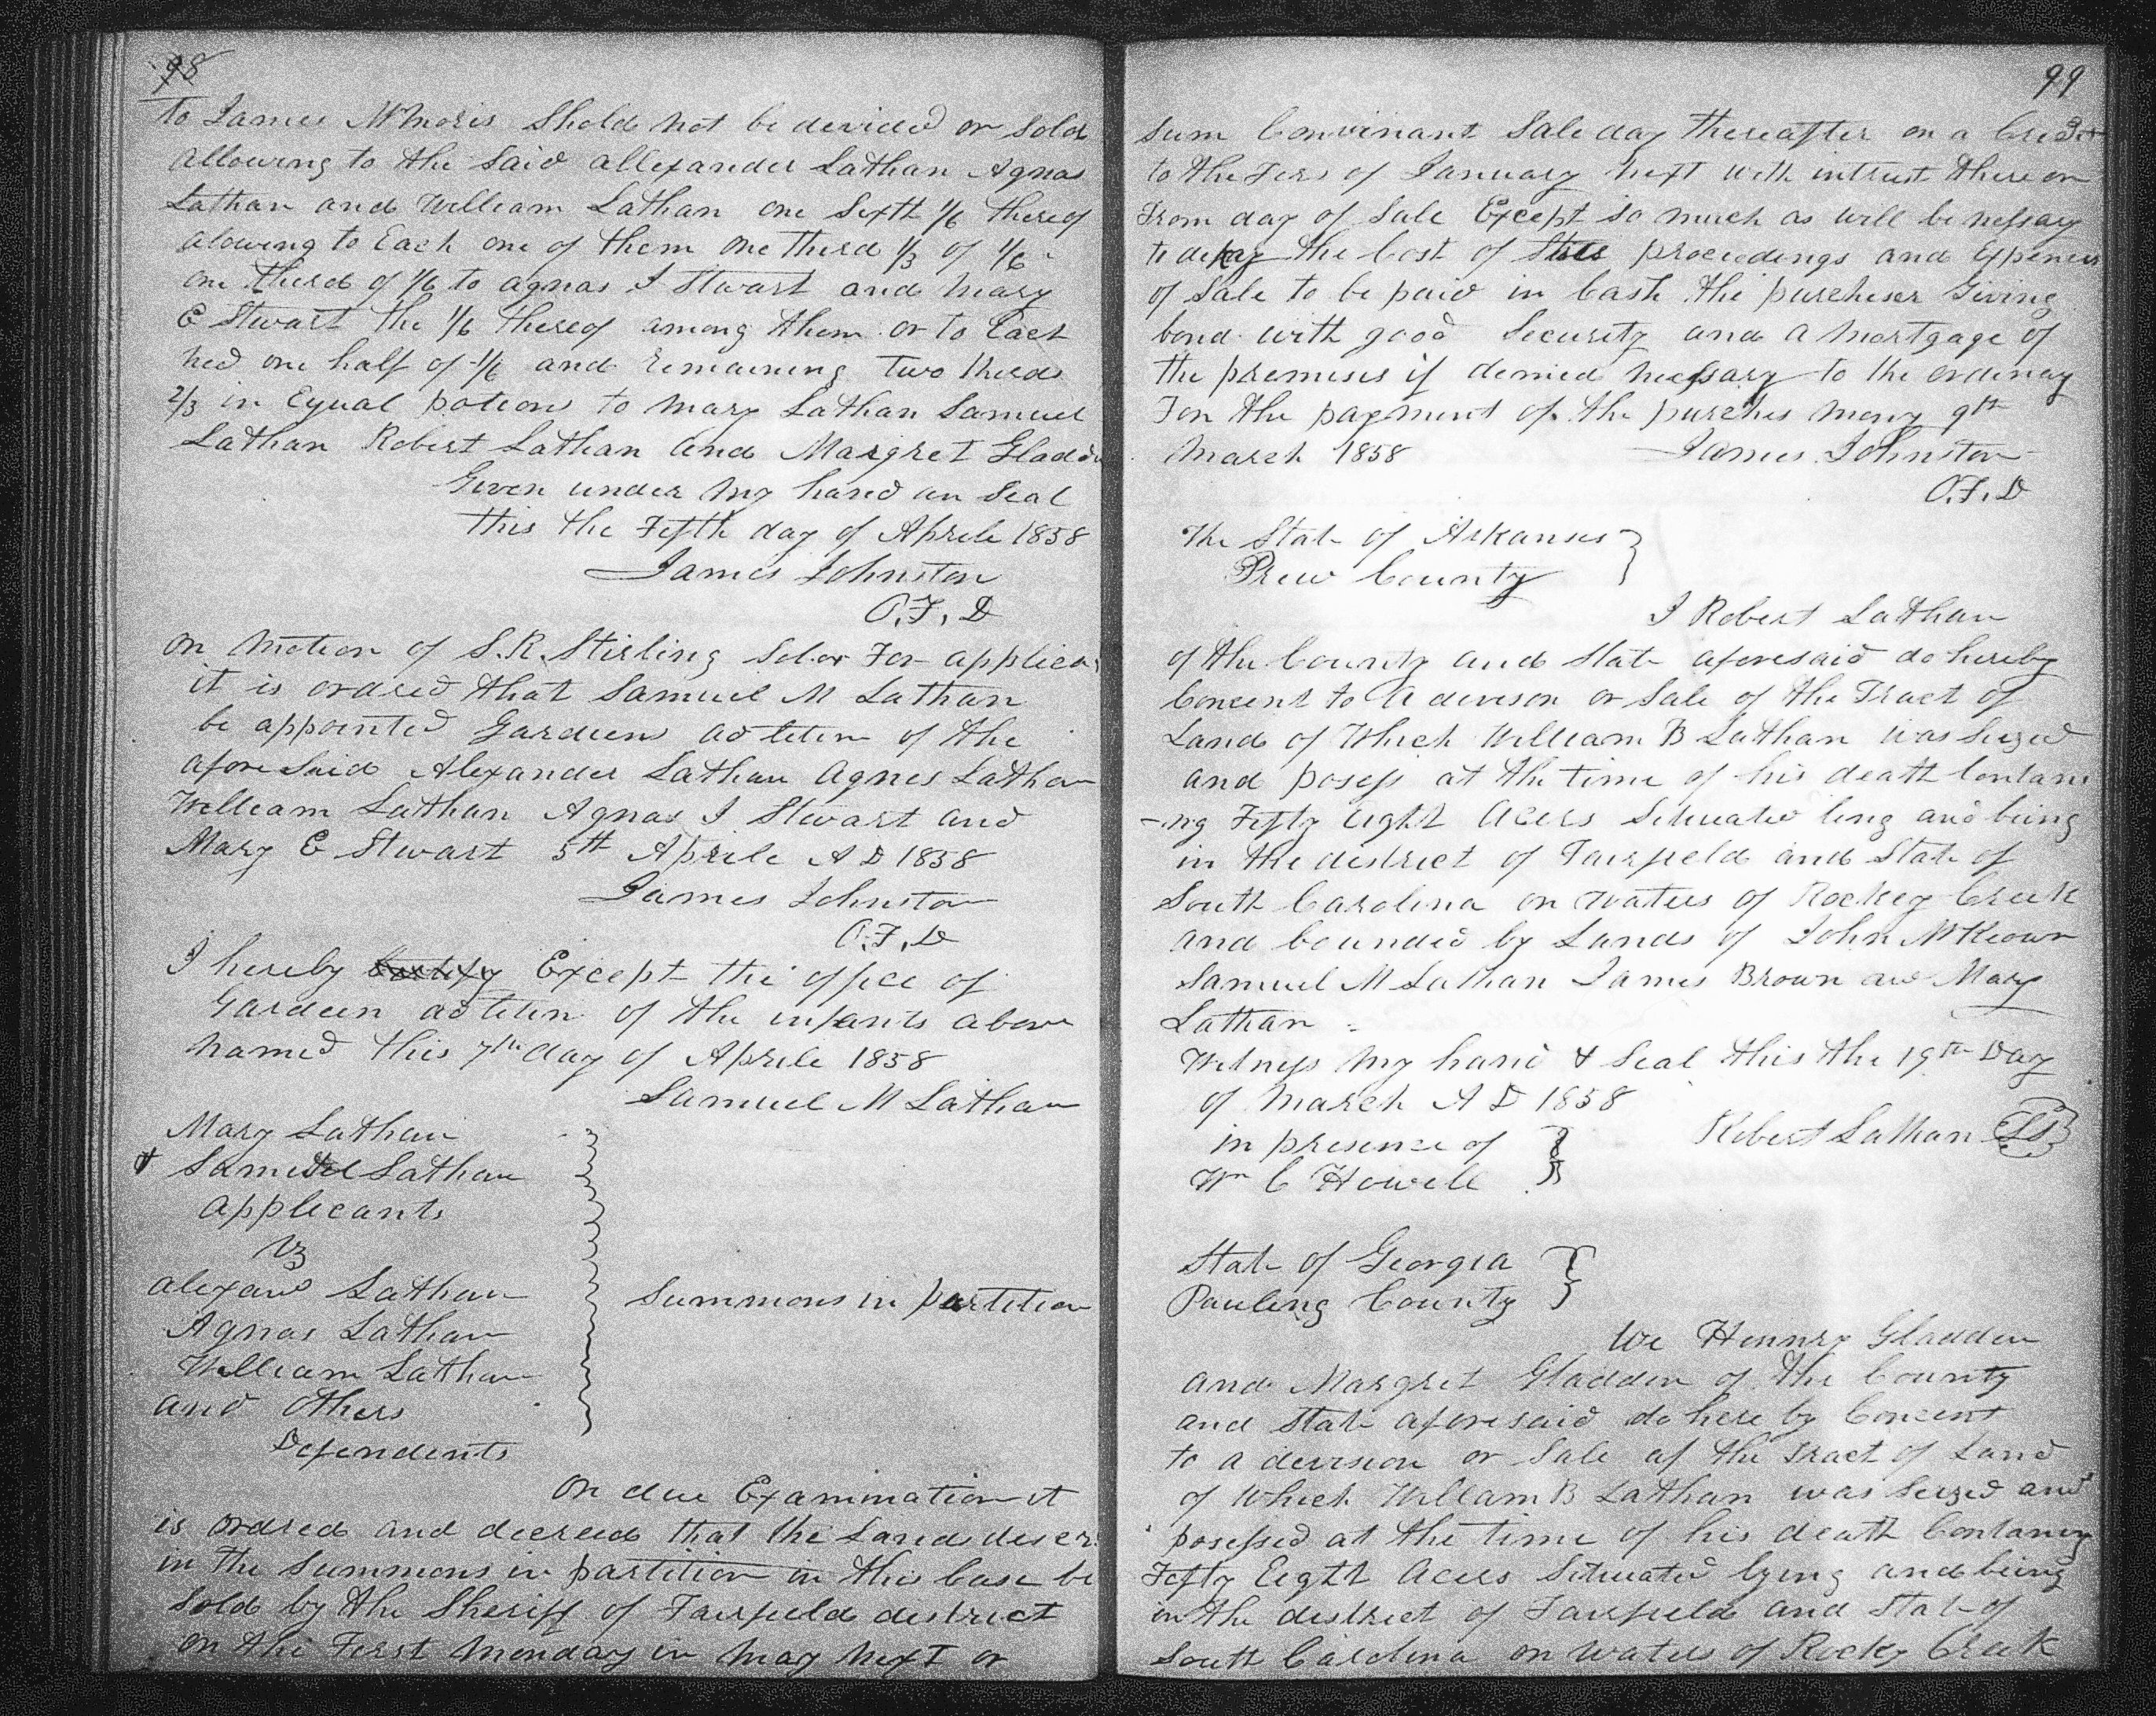 98
to James McMoris Shold not be devided or sold
allowing to the said allexander Lathan Agnas
Lathan and William Lathan one Sixth 1/6 thereof
alowing to Each one of them one third 1/3 of 1/6
one therd of 1/6 to agnas J Stwart and Mary
E Stwart the 1/6 thereof among them or to Each
hed one half of 1/6 and remaining two therds
2/3 in Equal potions to Mary Lathan Samuel
Lathan Robert Lathan and Margret Gladdn
Given under my hand an Seal
this the Fefth day of Aprile 1858
James Johnston
O.F.D
on motion of S.R. Stirling Solor For applica
it is ordred that Samuel M Lathan
be appointed Gardien ad leten of the
afore Said Alexander Lathan Agnes Lathan
William Lathan Agnas J Stwart and
Mary E Stwart 5th Aprile A D 1858
James Johnston
O.F.D
I hereby Except the office of
Gardeen ad leten of the infants above
named this 7th day of Aprile 1858
Samuel M Lathan
Mary Lathan
& Samuel Lathan
applecants
vs
alexand Lathan
Agnas Lathan
William Lathan
and Others
Defendents
Summons in partition
On due Examination it
is ordred and decreed that the Land descr
in the Summons in partition in this Case be
Sold by the Sheriff of Fairfield destrict
on the First Monday in May next or
99
sum Convinant Sale day thereafter on a Credt
to the Fers of January next with intrust there on
From day of Sale Except so much as will be nessary
to defray the Cost of these proceedings and Expenses
of Sale to be paid in Cash the purcheser Giving
bond with good Security and a Mortgage of
the premises if demied necssary to the ordenay
For the payment of the purches mony 9th
March 1858 James Johnston
O.F.D
The State of Arkanses
Drew County
I Robert Lathan
of the County and State aforesaid do hereby
Concent to a deveson or Sale of the Tract of
Land of Which William B Lathan was Seized
and posess at the time of his death Contani
-ng Fefty eight Acers Setuated ling and being
in the destrect of Fairfield and State of
South Carolina on waters of Rockey Creek
and bounded by Lands of John McKeown
Samuel M Lathan James Brown and Mary
Lathan
Witness my hand & Seal this the 19th Day
of March A D 1858
in presence of Robert Lathan LS
Wm C Howell
State of Georgia
Pauling County
We Hennry Gladden
and Margret Gladden of the County
and State aforesaid do here by Concent
to a devision or Sale of the Tract of Land
of Which Willam B Lathan was Seized and
posessed at the time of his death Contaneng
Fefty Eight Acers Setuated lying and being
in the destrect of Fairfield and State of
South Carolina on waters of Rocky Creek